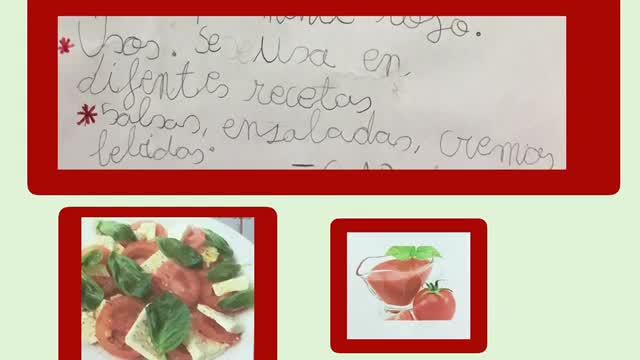 rojo.
* Usos. Se usa en,
difentes recetas
* salsas, ensaladas, cremas
bebidas.